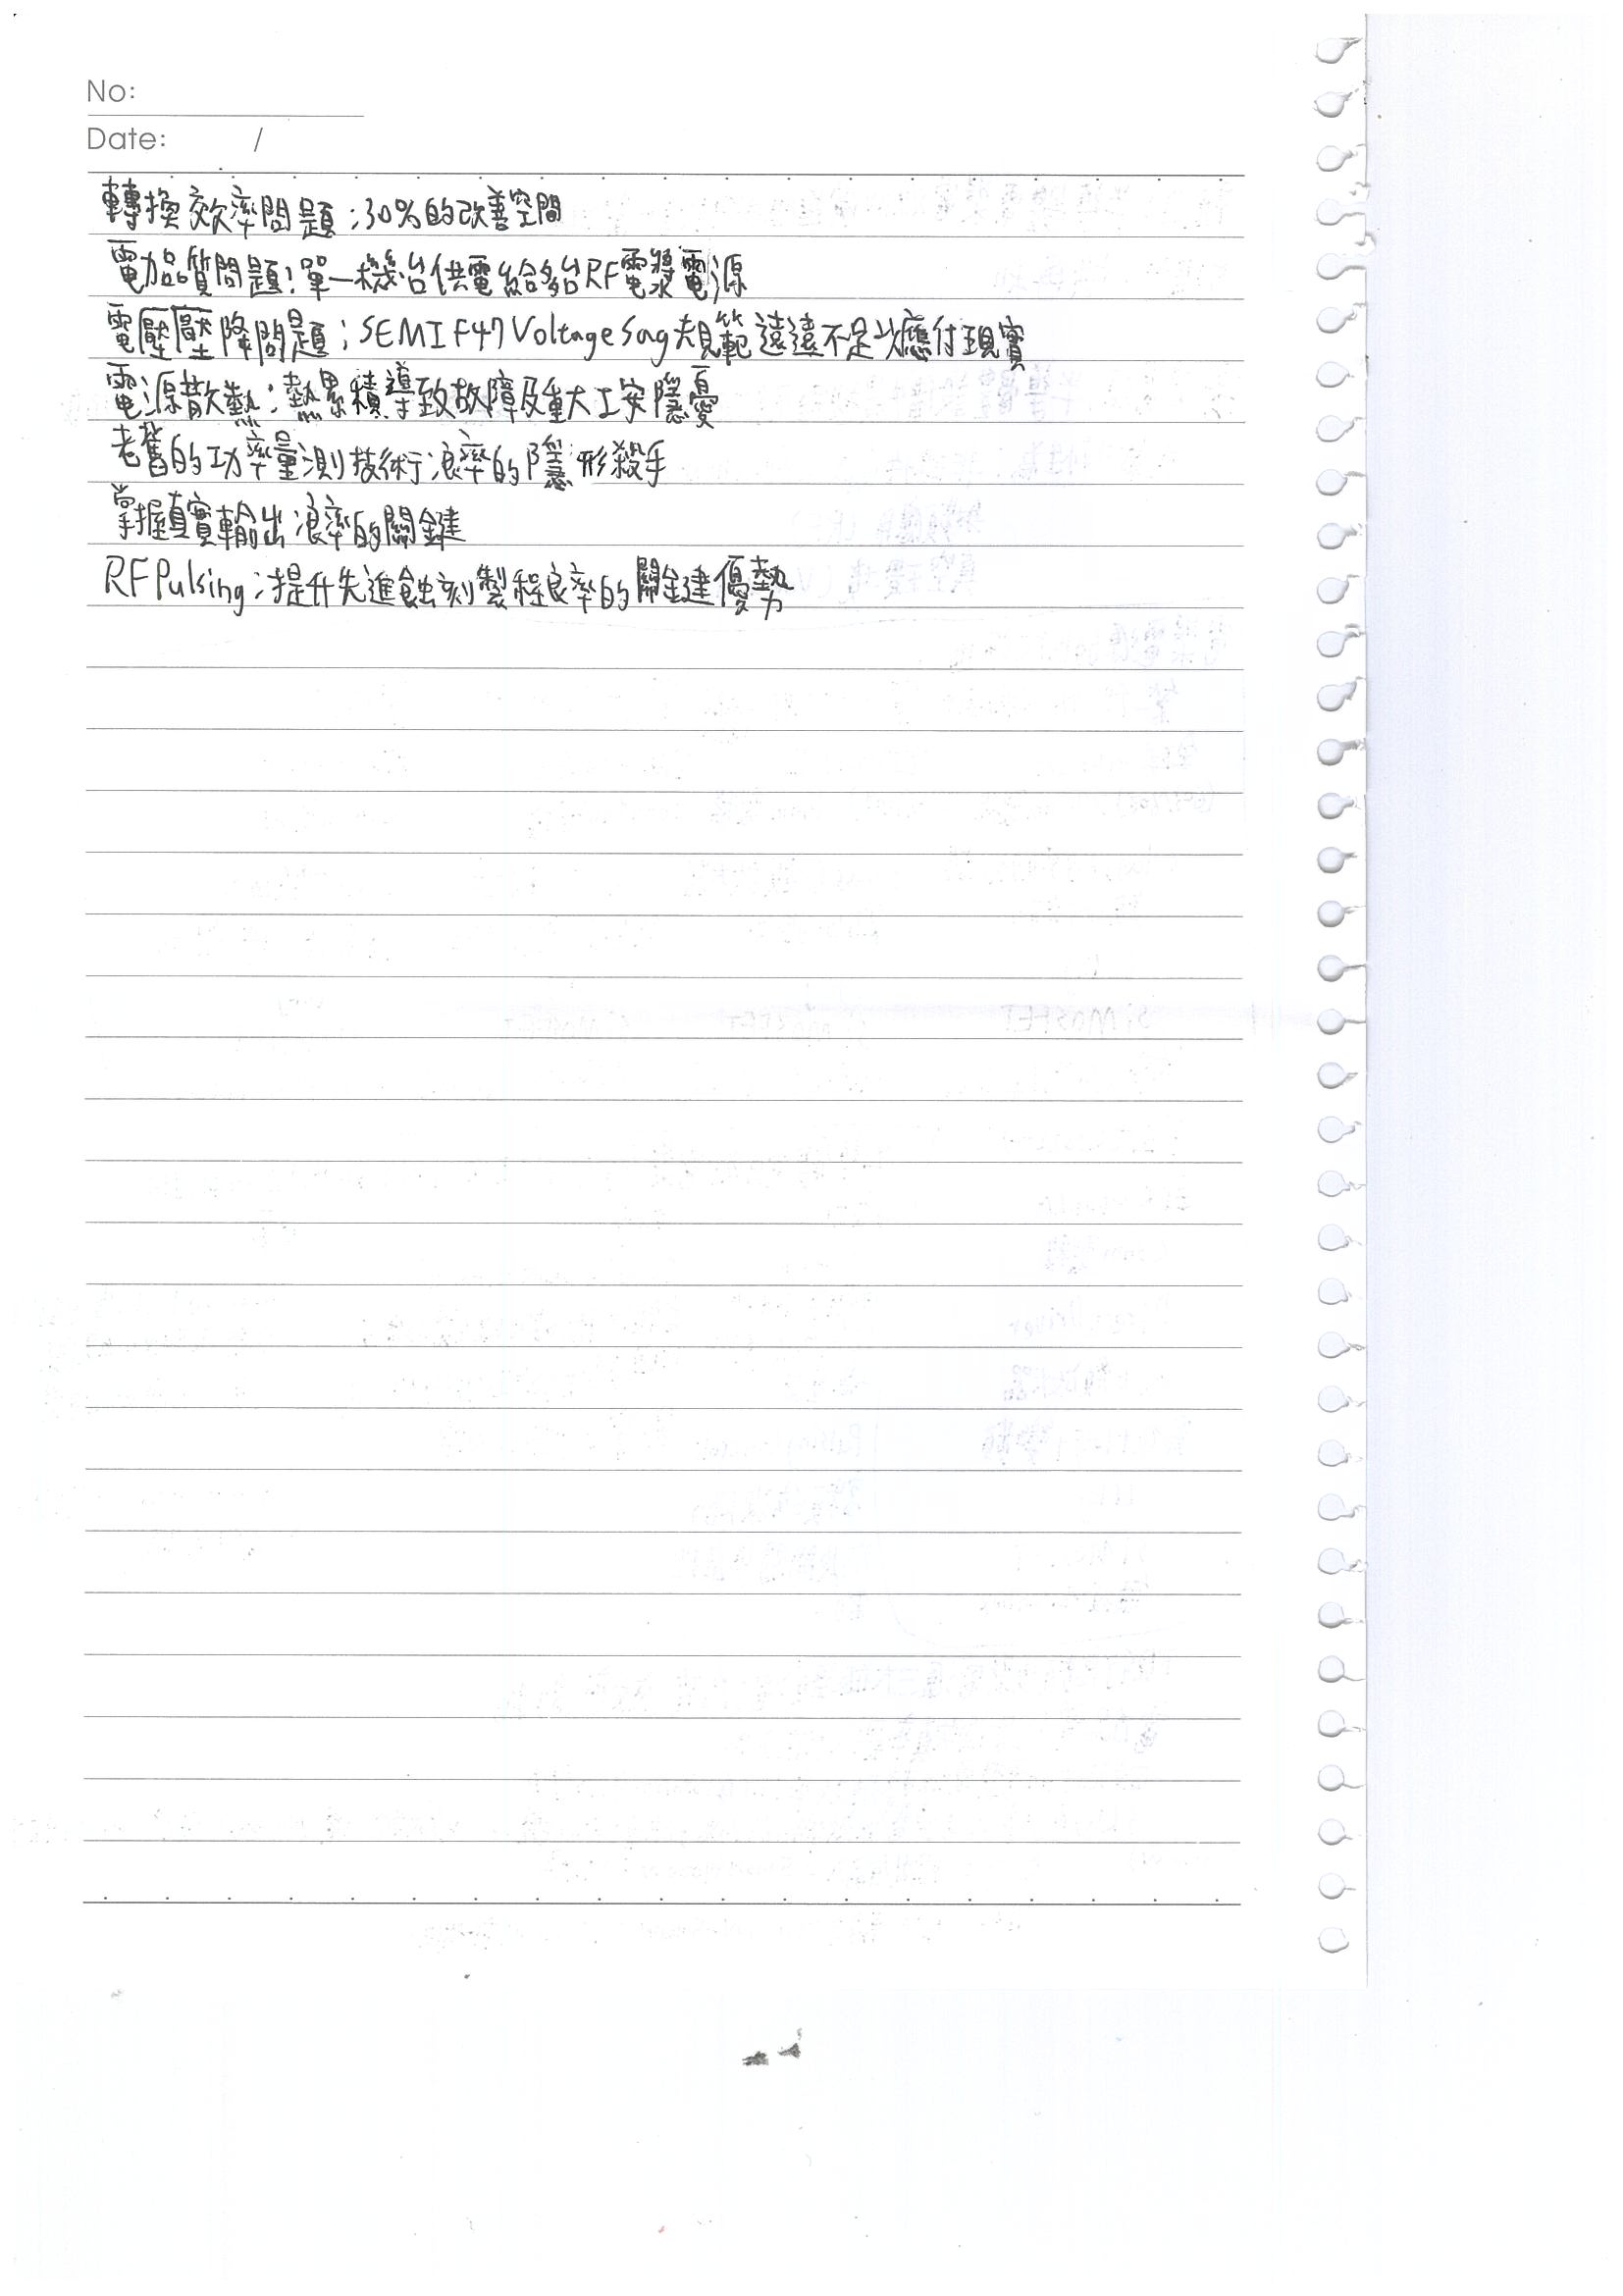 No:
Date: /
轉換效率問題:30%的改善空間
電力品質問題:單一機台供電給多台RF電漿電源
電壓壓降問題:SEMI F47 Voltage Sag規範遠遠不足以應付現實
電源散熱:熱累積導致故障及重大工安隱憂
老舊的功率量測技術浪率的隱形殺手
掌握真實輸出浪率的關鍵
RF Pulsing:提升先進蝕刻製程良率的關鍵優勢